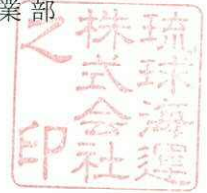 業部
琉球海運
株式会社
之印